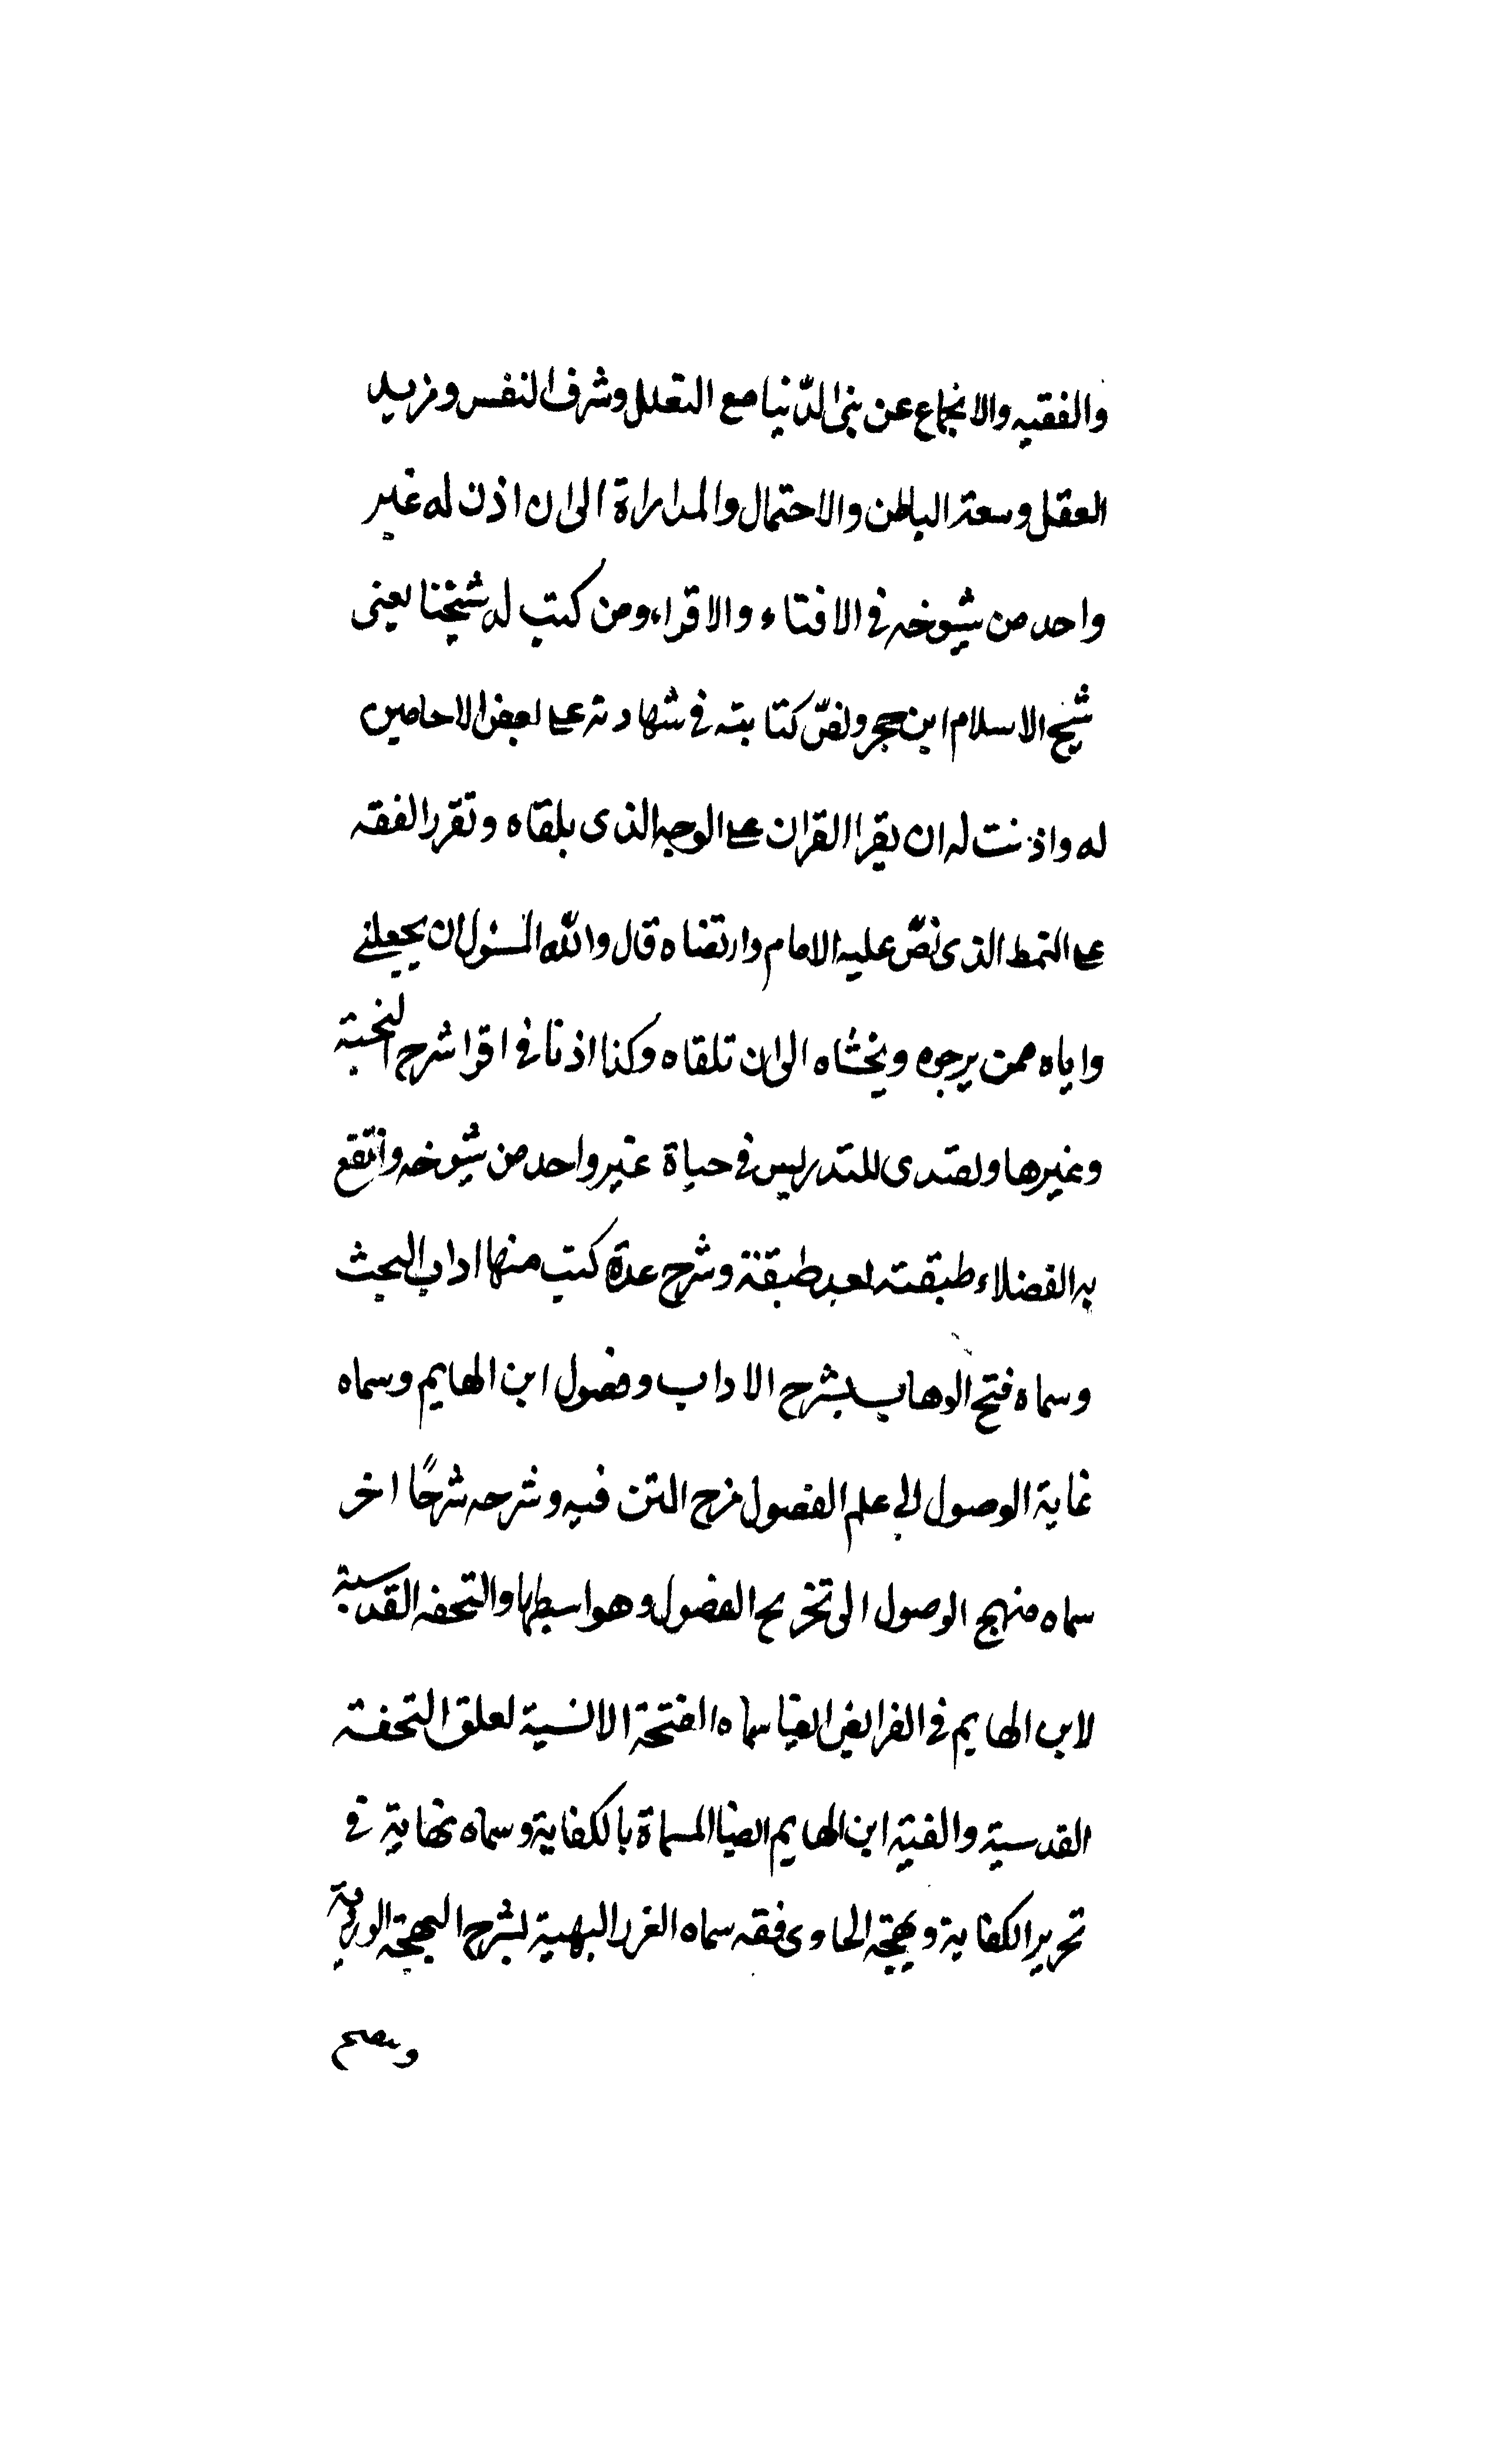 والفقيه والانجماع عن بنى الدّنيا مع التقلل وشرف النفس ومزيد
العقل وسعة الباطن والاحتمال والمداراة الى ان اذن له غير
واحد من شيوخه فى الافتاء والاقراء ومن كتب له شيخنا يعنى
شيخ الاسلام ابن حجر ونصّ كتابته فى شهادته على بعض الاحامين
له واذنت له ان يقرا القران على الوجه الذى بلقاه وتقرر الفقه
على النمط الذى نصّ عليه الامام وارتضاه قال والله المسئول ان يجعلنى
واياه ممن يرجوه ويخشاه الى ان تلقاه وكنا اذنا فى اقرا شرح النخبة
وغيرها وتصدى للتدريس فى حياة غير واحد من شيوخه وانتفع
به الفضلاء طبقته بعد طبقة وشرح عدة كتب منها اداب البحث
وسماه فتح الوهاب بشرح الاداب وفصول ابن الهايم وسماه
غاية الوصول الى علم الفصول مزج المتن فيه وشرحه شرحًا اخر
سماه منهج الوصول الى تخريج الفصول وهو ابسطها والتحفه القدسية
لابن الهايم فى الفرايض ايضا سماه الفتحة الانسية لغلق التحفة
القدسية والفية ابن الهايم ايضا المسماة بالكفاية وسماه نهاية فى
تحرير الكفاية وبهجة الحاوى فقه سماه الغرر البهية بشرح البهجة الوردية